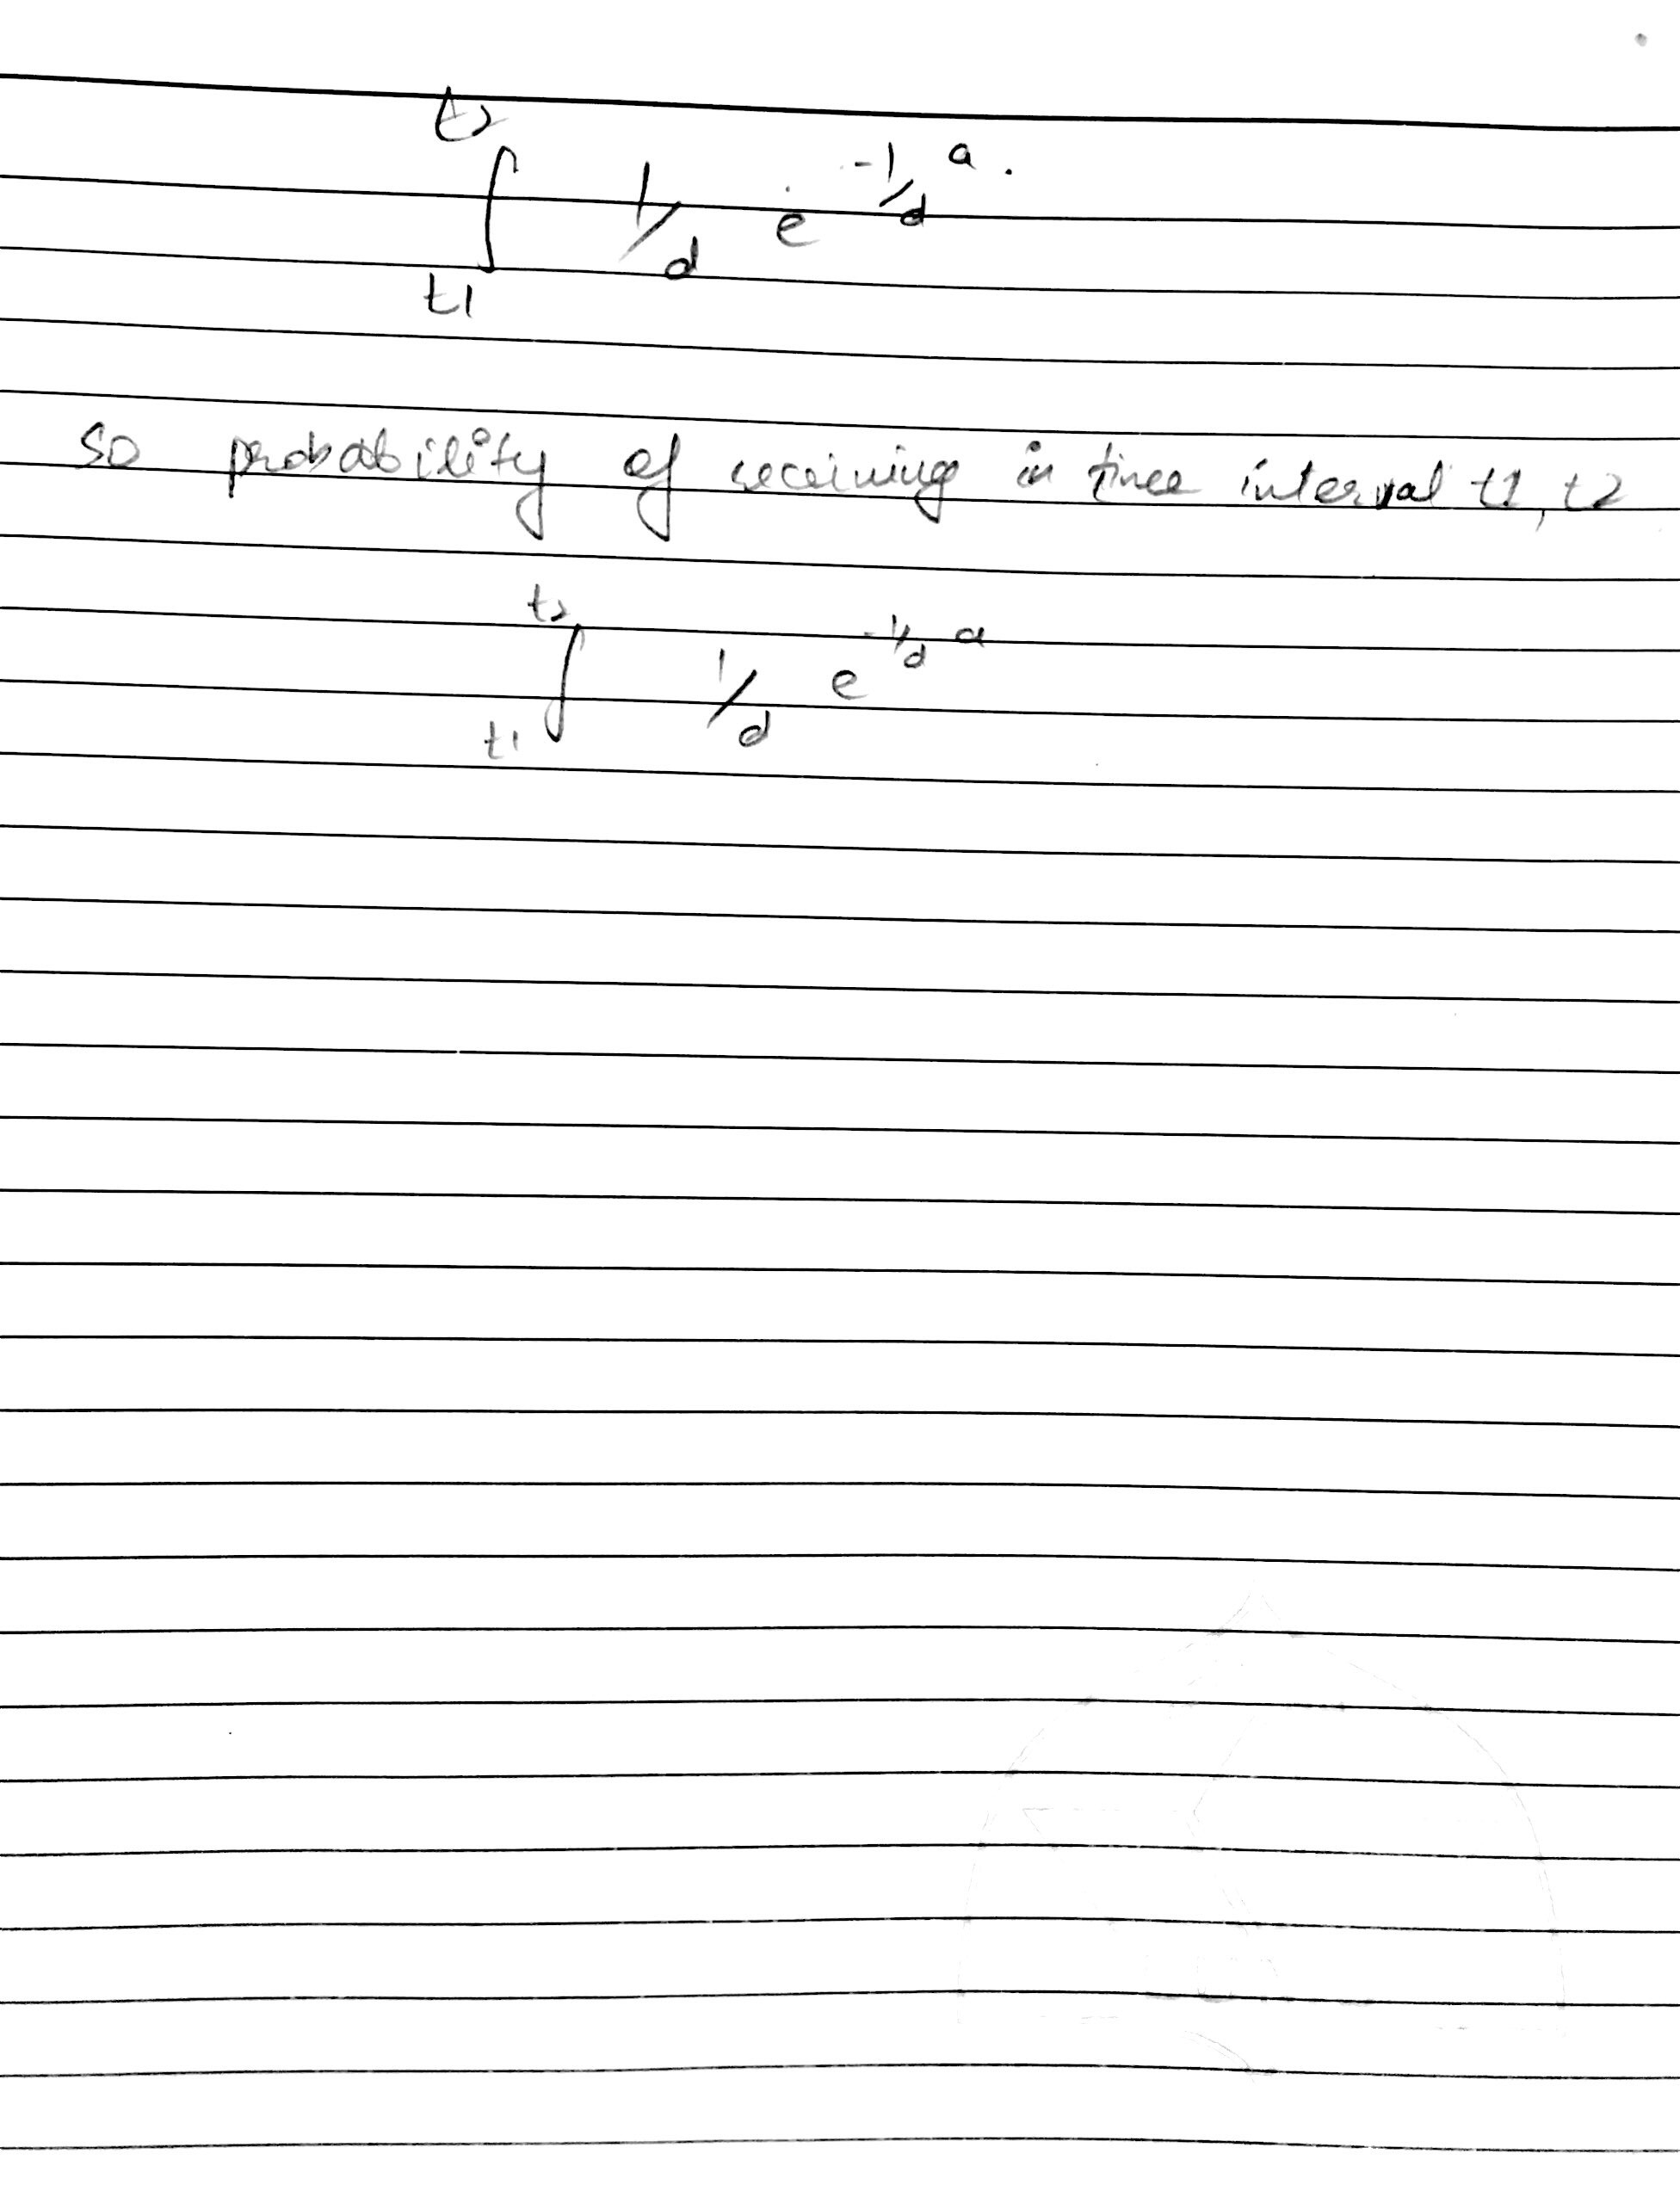 ∫_{t1}^{t2} 1/d e^{-1/d a} .
so probability of receiving in time interval t1, t2
∫_{t1}^{t2} 1/d e^{-1/d a}